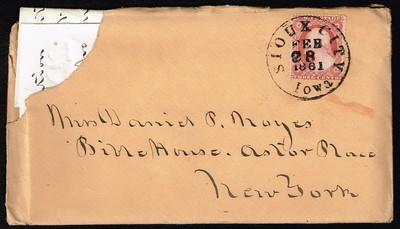 SIOUX CITY
FEB
28
1861
Iowa
THREE CENTS
Mrs Daniel P. Noyes
Bible House. Astor Place
New York